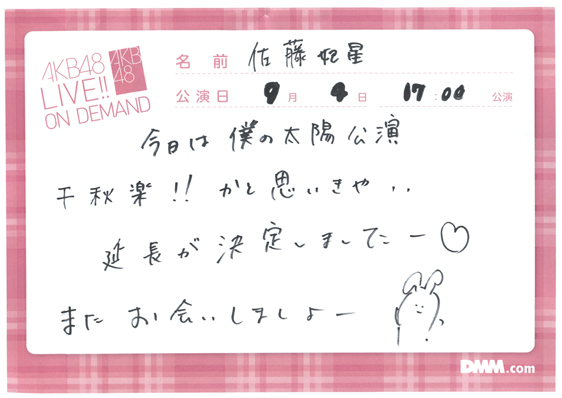 AKB48
LIVE!!
ON DEMAND
AKB
48
名前 佐藤妃星
公演日 9月4日 17:00 公演
今日は僕の太陽公演
千秋楽!! かと思いきや..
延長が決定しましたー♡
またお会いしましょー
DMM.com